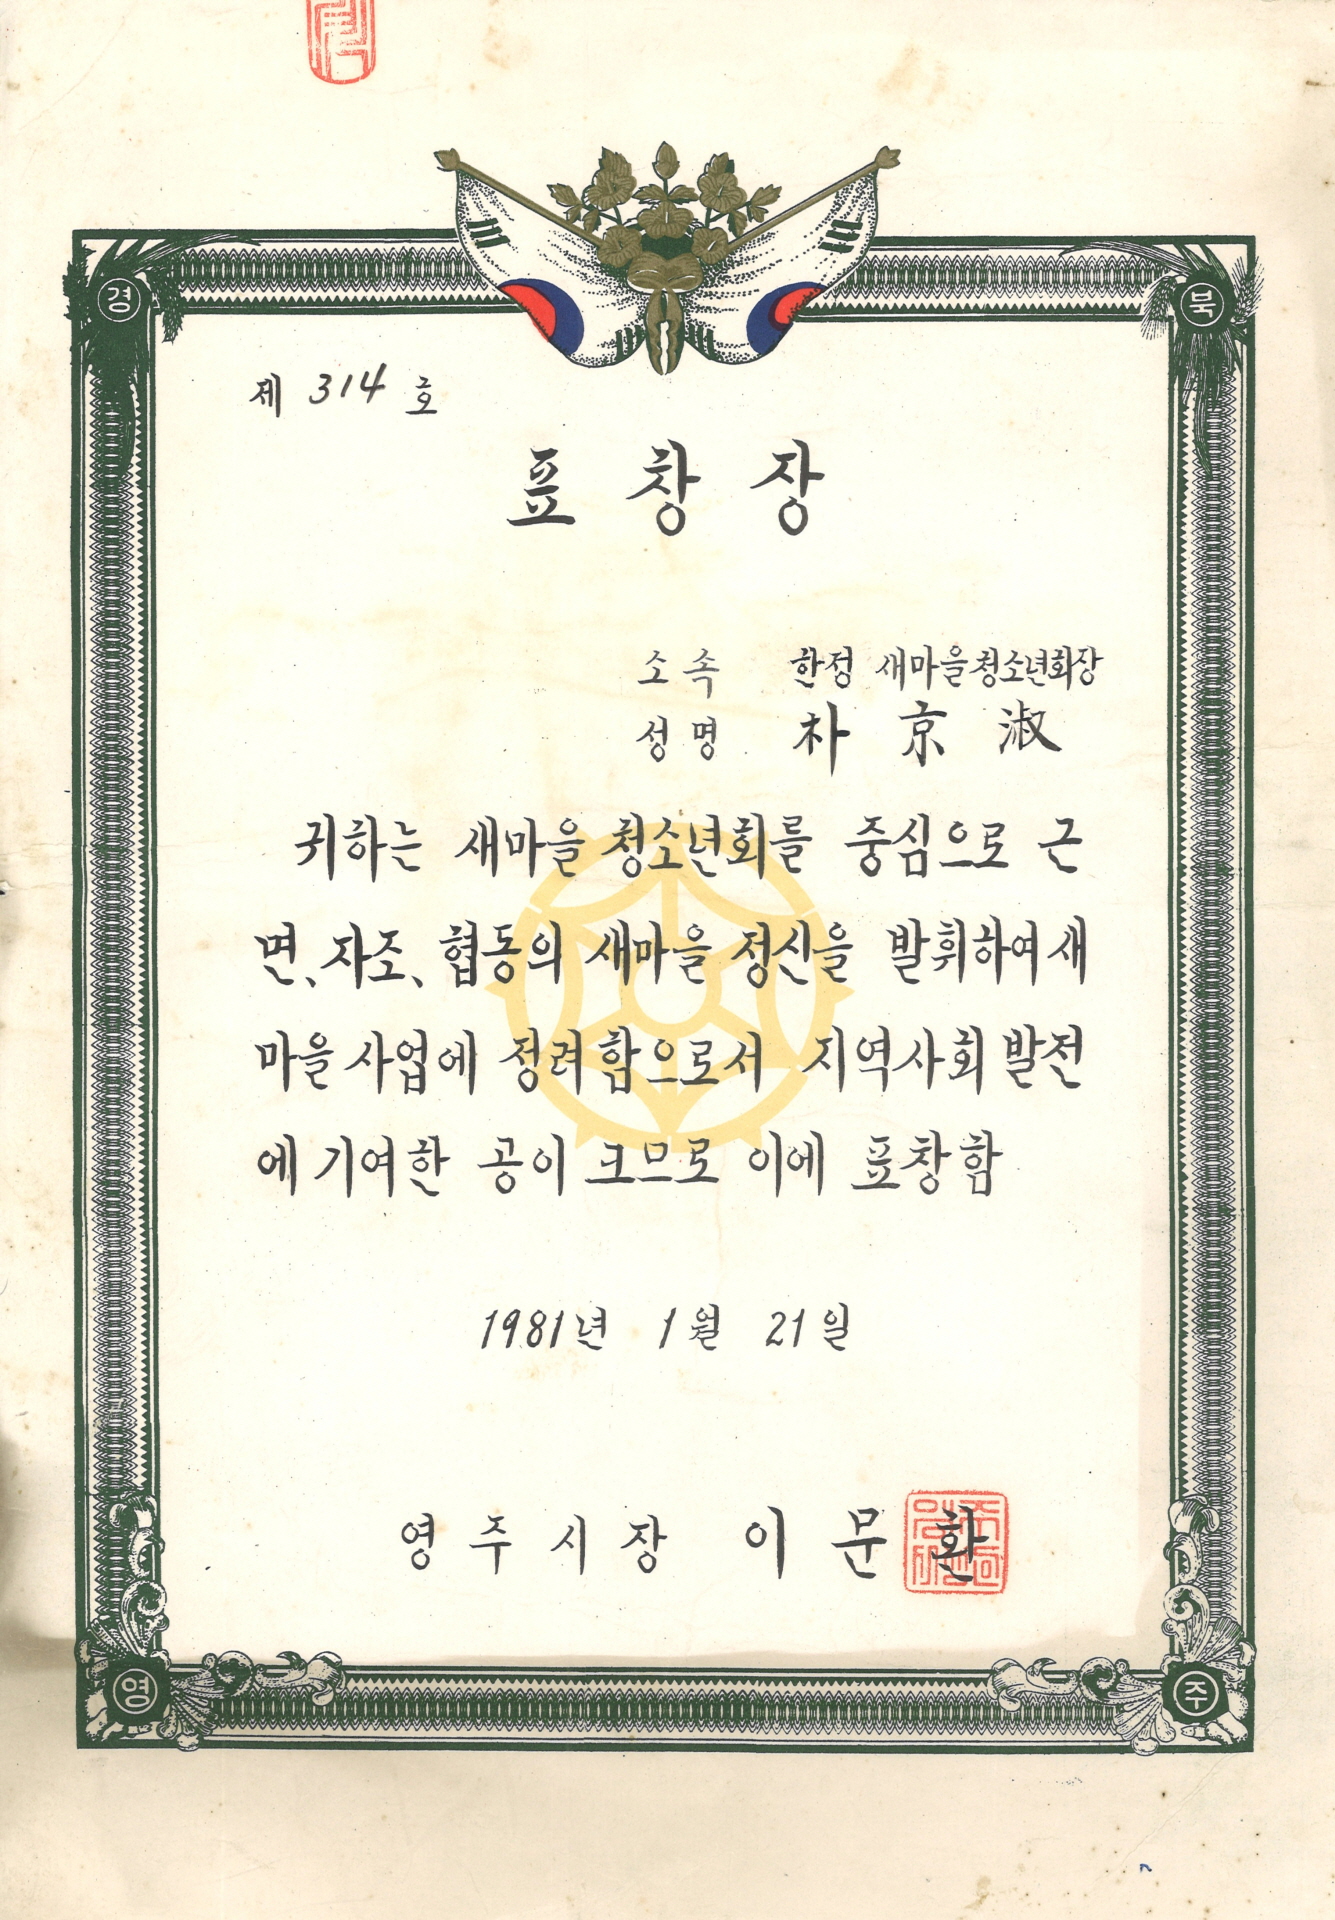 경 북
제 314 호
표 창 장
소 속 한정 새마을청소년회장
성 명 朴 京 淑
귀하는 새마을 청소년회를 중심으로 근
면、자조、협동의 새마을 정신을 발휘하여 새
마을 사업에 정려함으로서 지역사회 발전
에 기여한 공이 크므로 이에 표창함
1981년 1월 21일
영 주 시 장 이 문 환
영 주